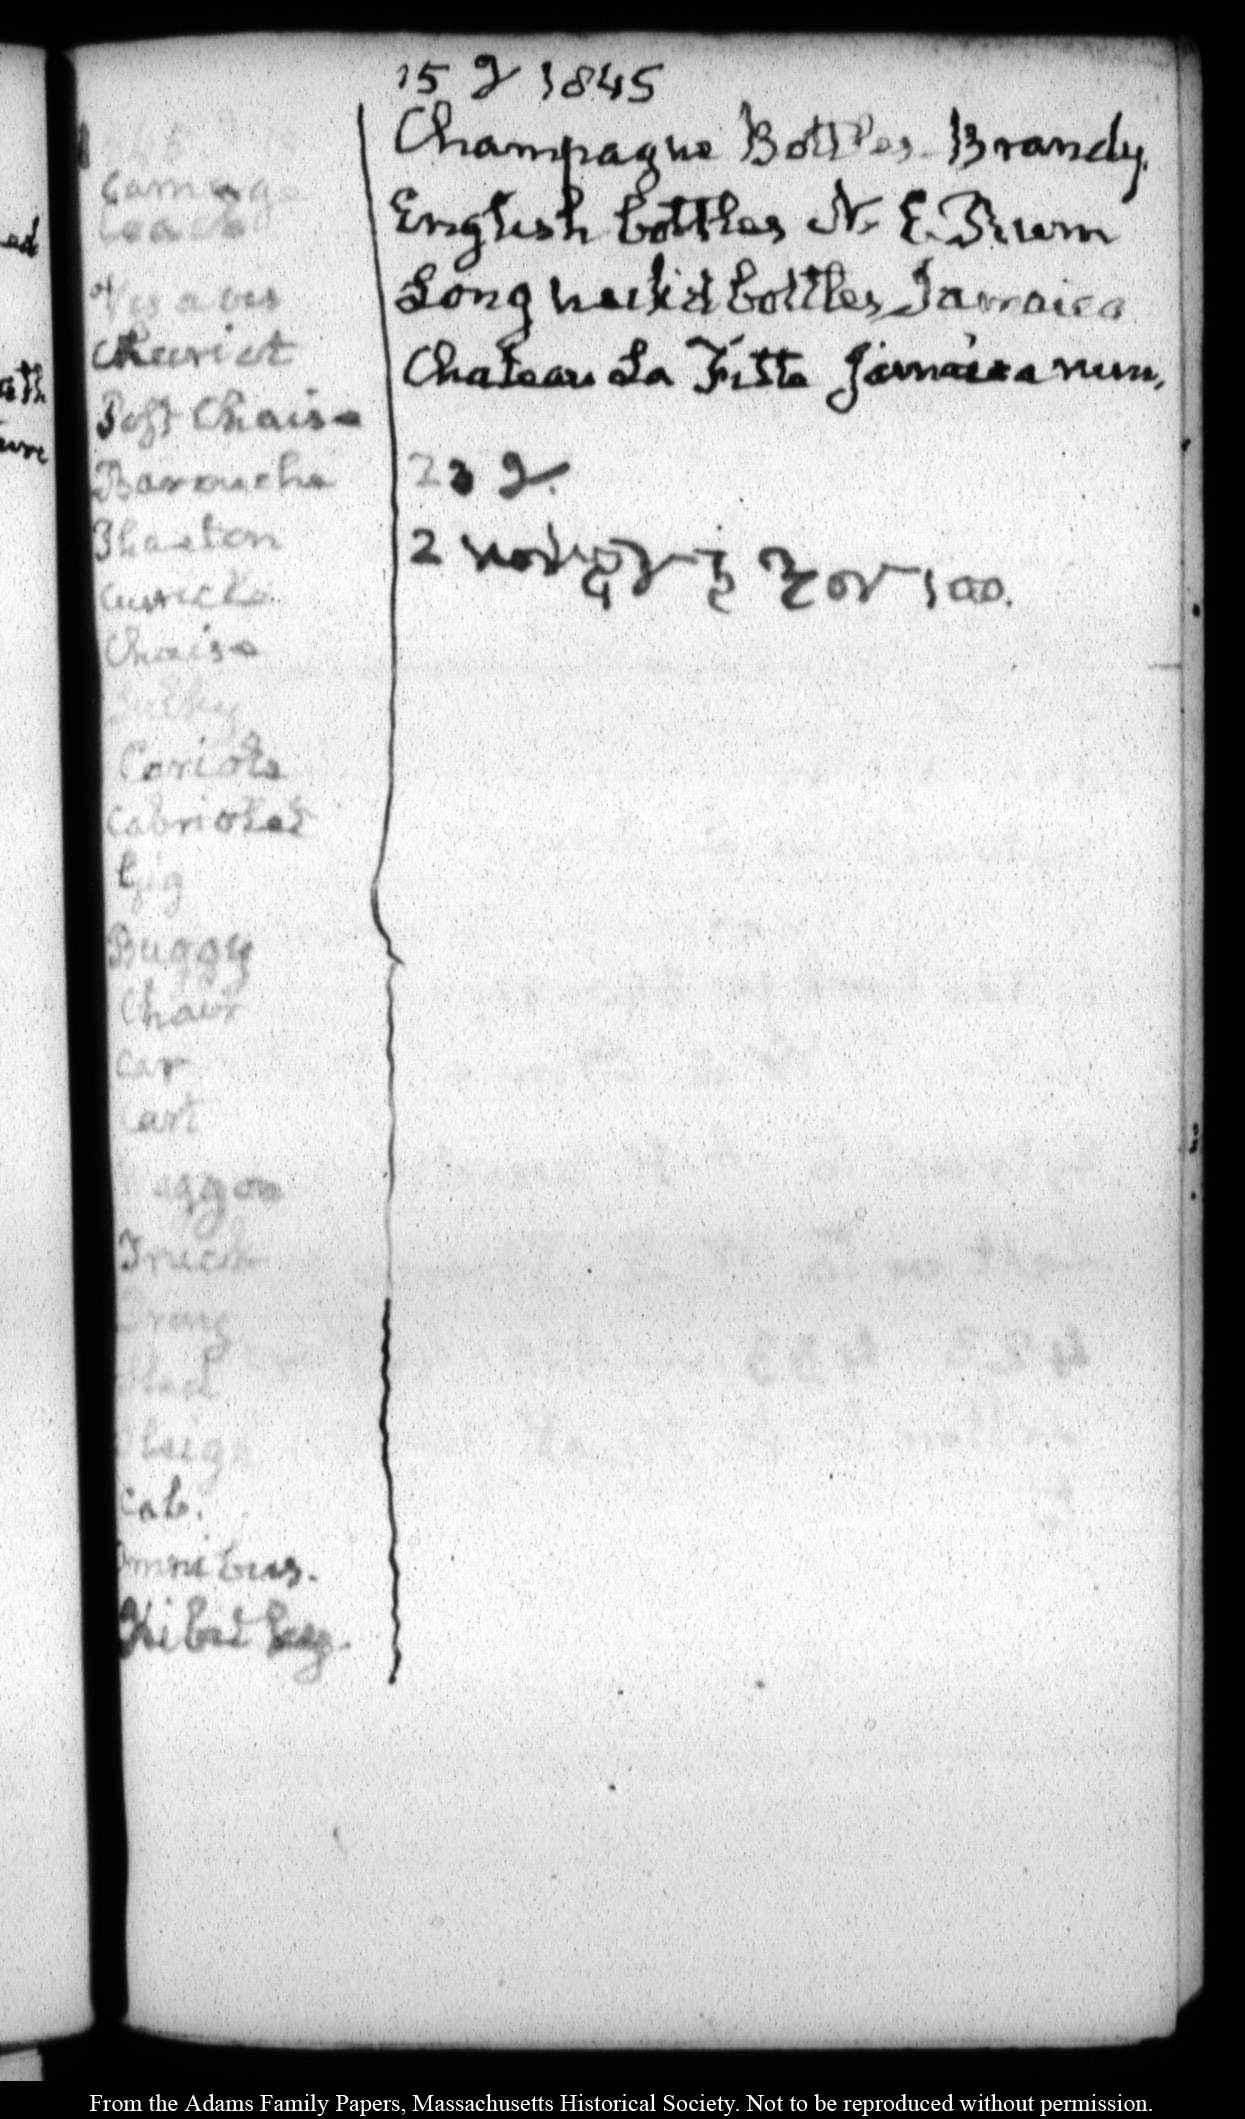 15 J 1845
Champagne Bottles Brandy.
English bottles N. E. Rum
Long neck'd bottles Jamaica
Chateau La Fitte Jamaica rum,
23 J.
2 100.
ed
ath
ure
Carriage
Coach
Vis a vis
Chariot
Post Chaise
Barouche
Phaeton
Curricle
Chaise
Sulky
Cariole
Cabriolet
Gig
Buggy
Chair
Car
Cart
Waggon
Truck
Dray
Sled
Sleigh
Cab.
Omnibus.
From the Adams Family Papers, Massachusetts Historical Society. Not to be reproduced without permission.